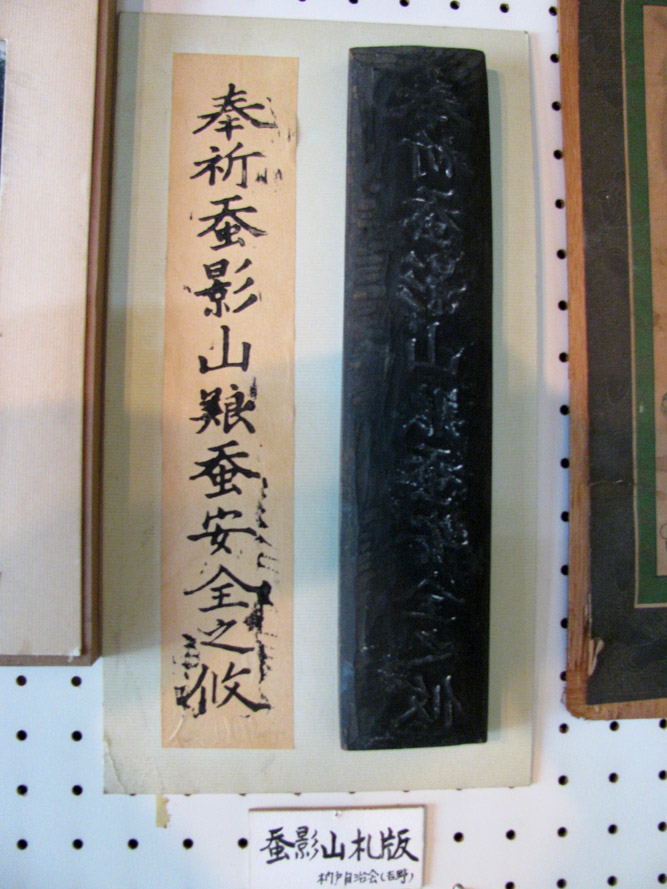 奉祈蚕影山養蚕安全之攸
蚕影山札版
自治会(吉野)